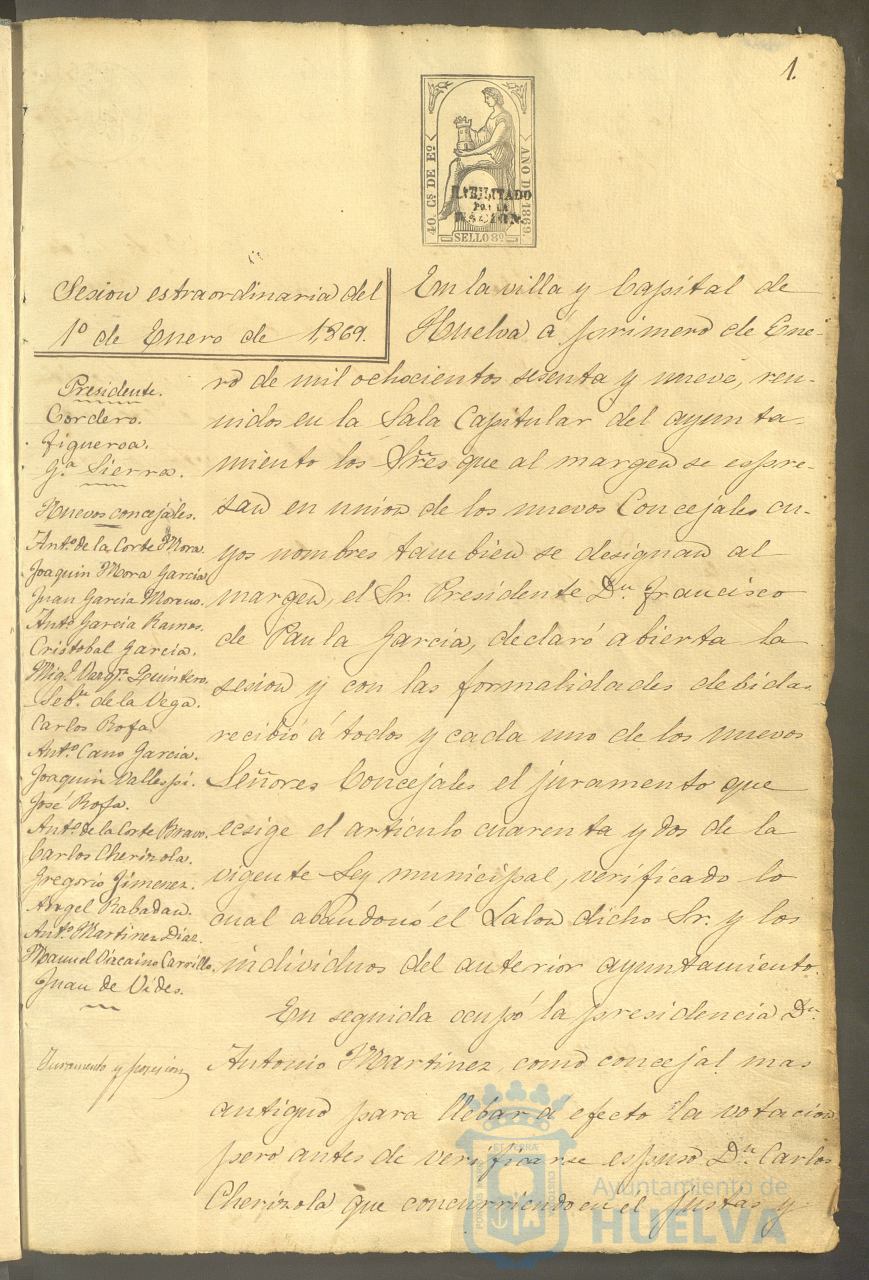 1.
40. Cs DE Eo
AÑO DE 1869.
HABILITADO
POR LA
NACION.
SELLO 8o
Sesion estraordinaria del
1o de Enero de 1,869.
Presidente.
Cordero.
Figueroa.
Ga Sierra.
Nuevos concejales.
Anto de la Corte Mora.
Joaquin Mora Garcia
Juan Garcia Moreno.
Anto Garcia Ramos.
Cristobal Garcia.
Migl Vazqz Quintero.
Sebn de la Vega.
Carlos Rofa
Anto Cano Garcia.
Joaquin Vallespi.
José Rofa.
Anto de la Corte Bravo.
Carlos Cherizola.
Gregorio Jimenez.
Angel Rabadan.
Anto Martinez Diaz.
Manuel Vizcaino Carrillo.
Juan de Vides.
Juramento y posesion
En la villa y Capital de
Huelva á primero de Ene-
ro de mil ochocientos sesenta y nueve, reu-
nidos en la Sala Capitular del ayunta-
miento los Sres que al margen se espre-
san en union de los nuevos Concejales cu-
yos nombres tambien se designan al
margen, el Sr. Presidente Dn. Francisco
de Paula Garcia, declaró abierta la
sesion y con las formalidades debidas
recibió á todos y cada uno de los nuevos
Señores Concejales el juramento que
ecsige el articulo cuarenta y dos de la
vigente Ley municipal, verificado lo
cual abandonó el Salon dicho Sr. y los
individuos del anterior ayuntamiento.
En seguida ocupó la presidencia Dn.
Antonio Martinez, como concejal mas
antiguo para llebar á efecto la votacion
pero antes de verificarse espuso Dn. Carlos
Cherizola que concurriendo en él justas y
Ayuntamiento de
HUELVA